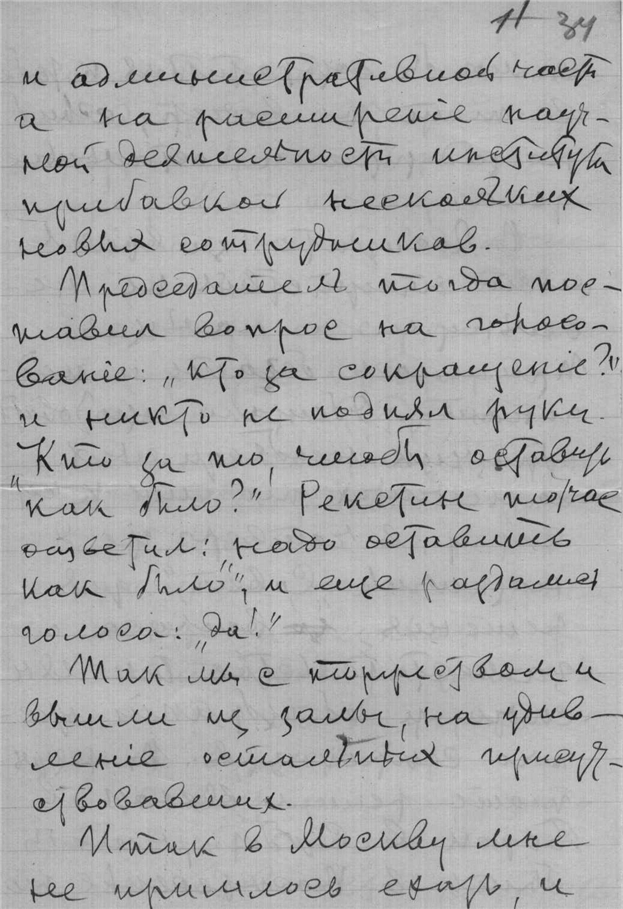 11 34
и административной части
а на расширенiе науч-
ной деятельности института
прибавкой нескольких
новых сотрудников.
Председатель тогда пос-
тавил вопрос на голосо-
ванiе: „кто за сокращенiе?"
и никто не поднял руки.
„Кто за то, чтобы оставить
как было?" Рекстин тотчас
ответил: „надо оставить
как было", и еще раздались
голоса: „да!"
Так мы с торжеством и
вышли из залы, на удив-
ленiе остальных присут-
ствовавших.
Итак в Москву мне
не пришлось ехать, и